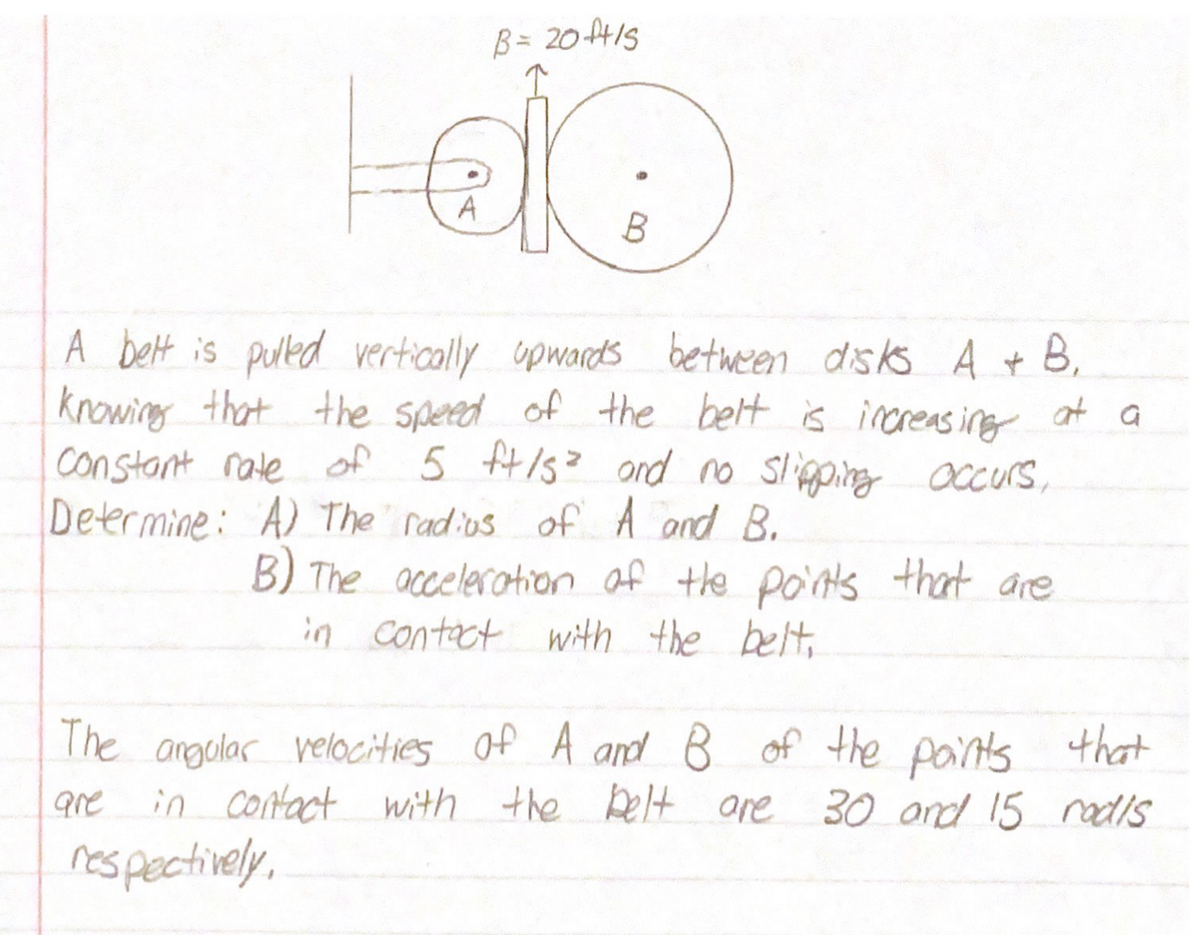 B = 20 ft/s
A
B
A belt is pulled vertically upwards between disks A + B.
Knowing that the speed of the belt is increasing at a
constant rate of 5 ft/s² and no slipping occurs,
Determine: A) The radius of A and B.
B) The acceleration of the points that are
in contact with the belt.
The angular velocities of A and B of the points that
are in contact with the belt are 30 and 15 rad/s
respectively.